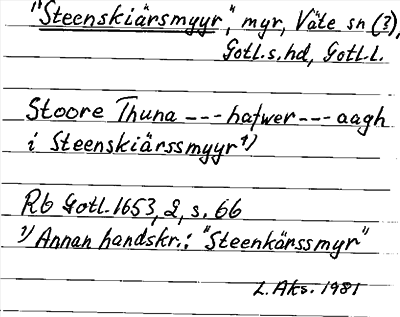 "Steenskiärsmyyr", myr, Väte sn (?),
Gotl.s.hd, Gotl.l.
Stoore Thuna --- hafwer --- aagh
i Steenskiärssmyyr 1)
Rb Gotl. 1653, 2, s. 66
1) Annan handskr.: "Steenkärssmyr"
L. Aks. 1981